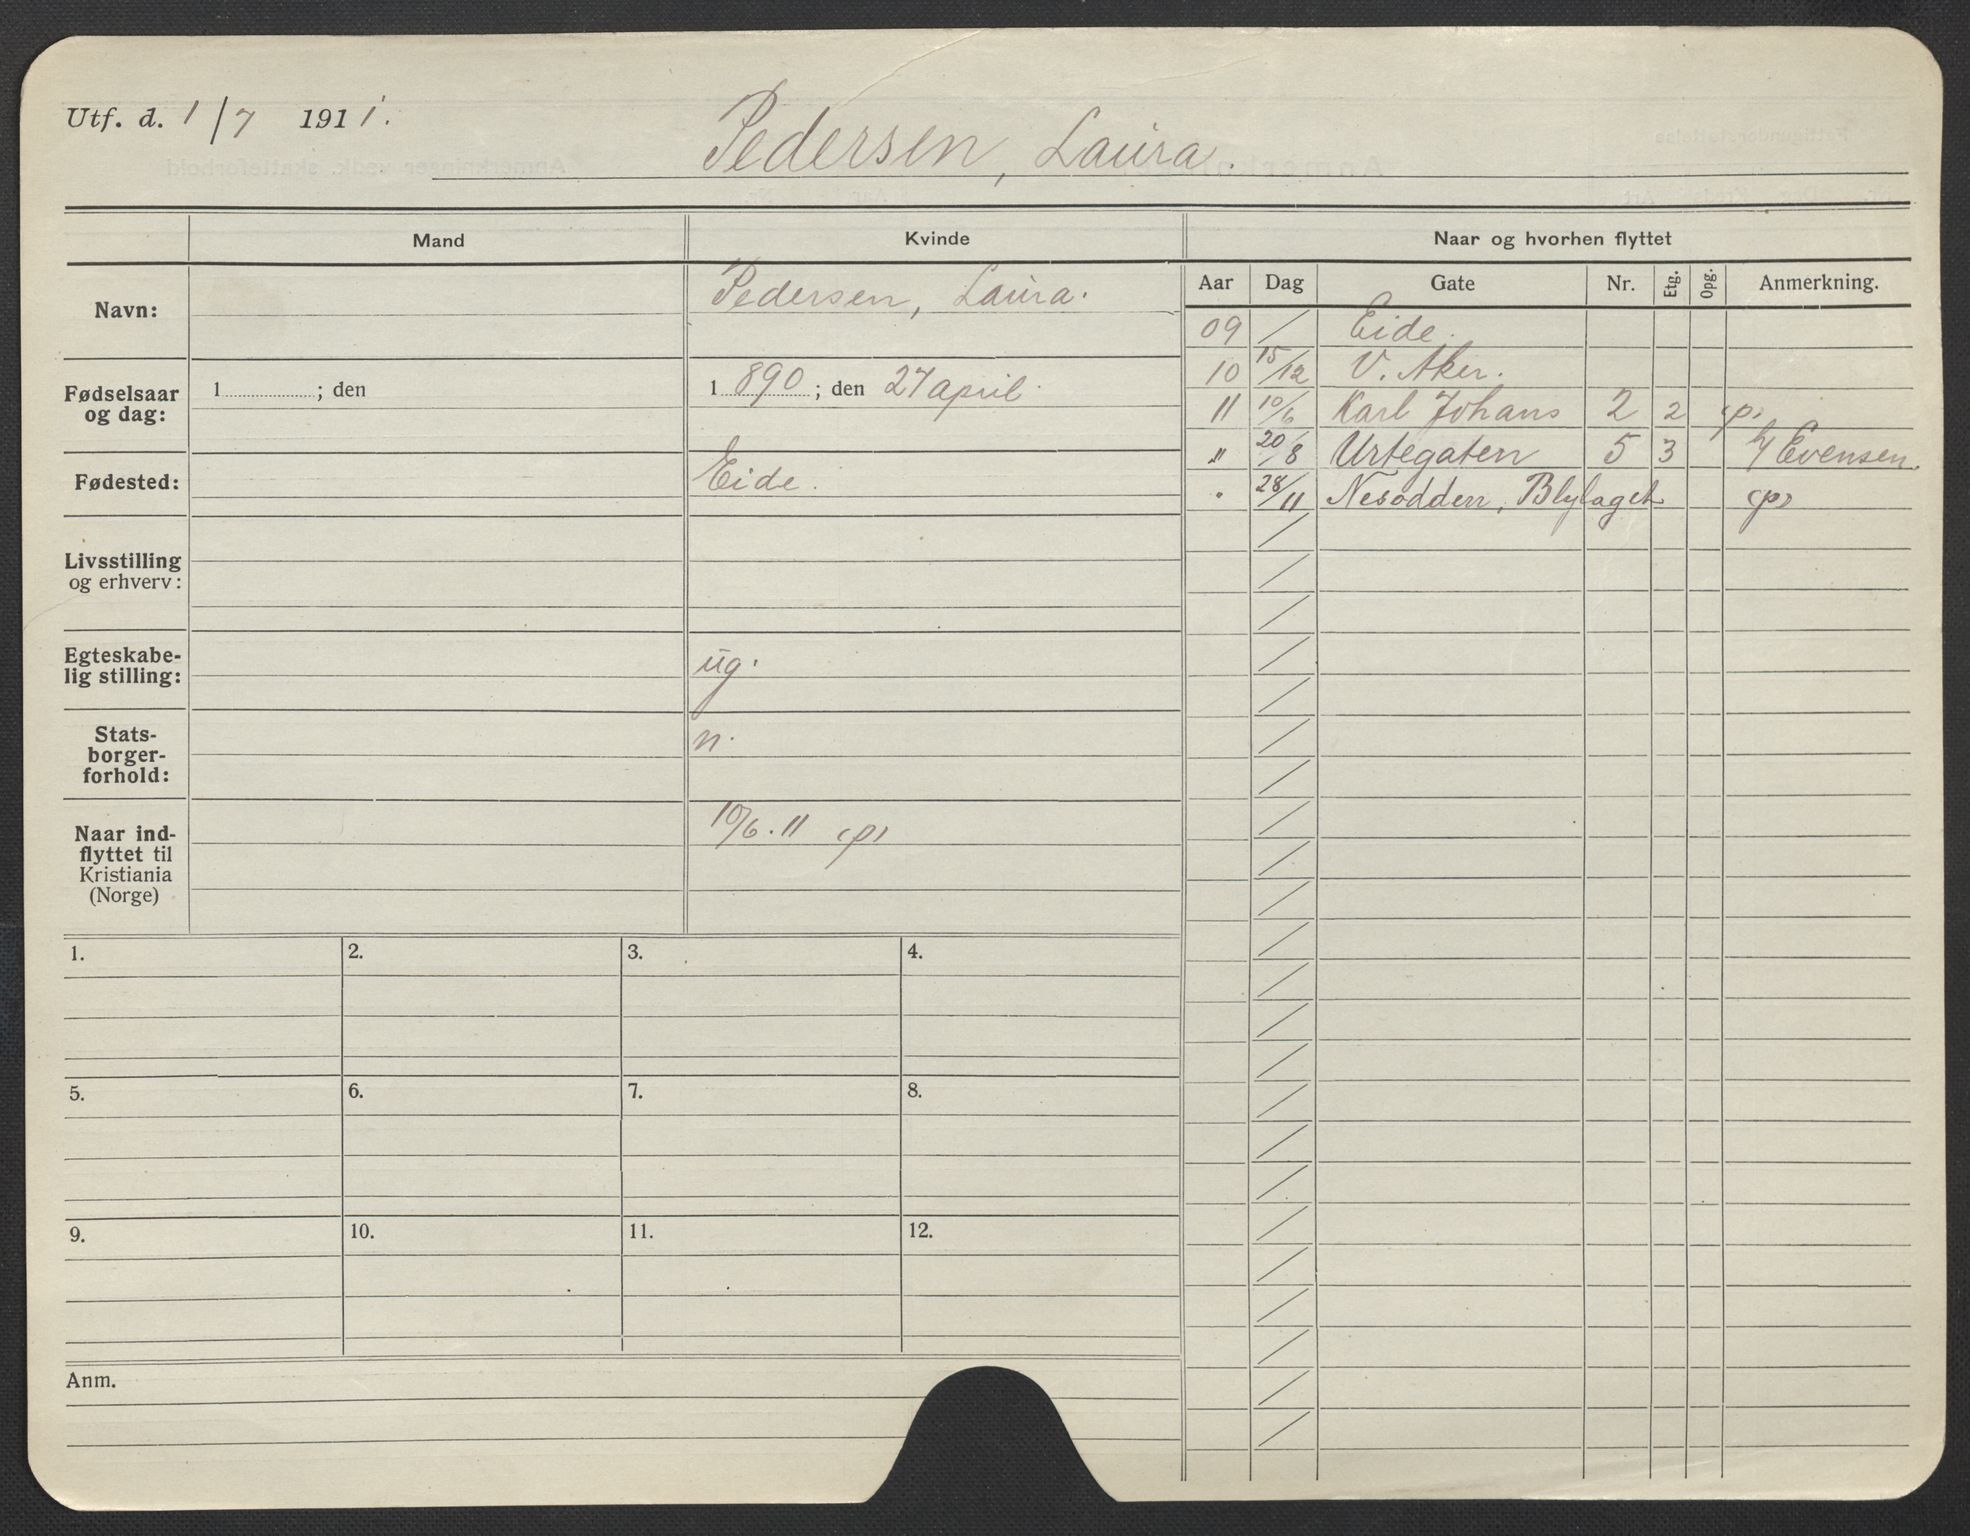 Utf. d. 1/7 1911.
Pedersen, Laura.
Mand
Kvinde
Naar og hvorhen flyttet
Aar Dag Gate Nr. Etg. Opg. Anmerkning.
Navn:
Pedersen, Laura.
Fødselsaar
og dag:
1 ; den
1 890 ; den 27 april.
Fødested:
Eide.
Livsstilling
og erhverv:
Egteskabe-
lig stilling:
ug.
Stats-
borger-
forhold:
n.
Naar ind-
flyttet til
Kristiania
(Norge)
10/6. 11 (p)
09 / Eide.
10 15/12 V. Aker.
11 10/6 Karl Johans 2 2 (p)
" 20/8 Urtegaten 5 3 Evensen.
" 28/11 Nesodden, Blylaget (p)
1. 2. 3. 4.
5. 6. 7. 8.
9. 10. 11. 12.
Anm.